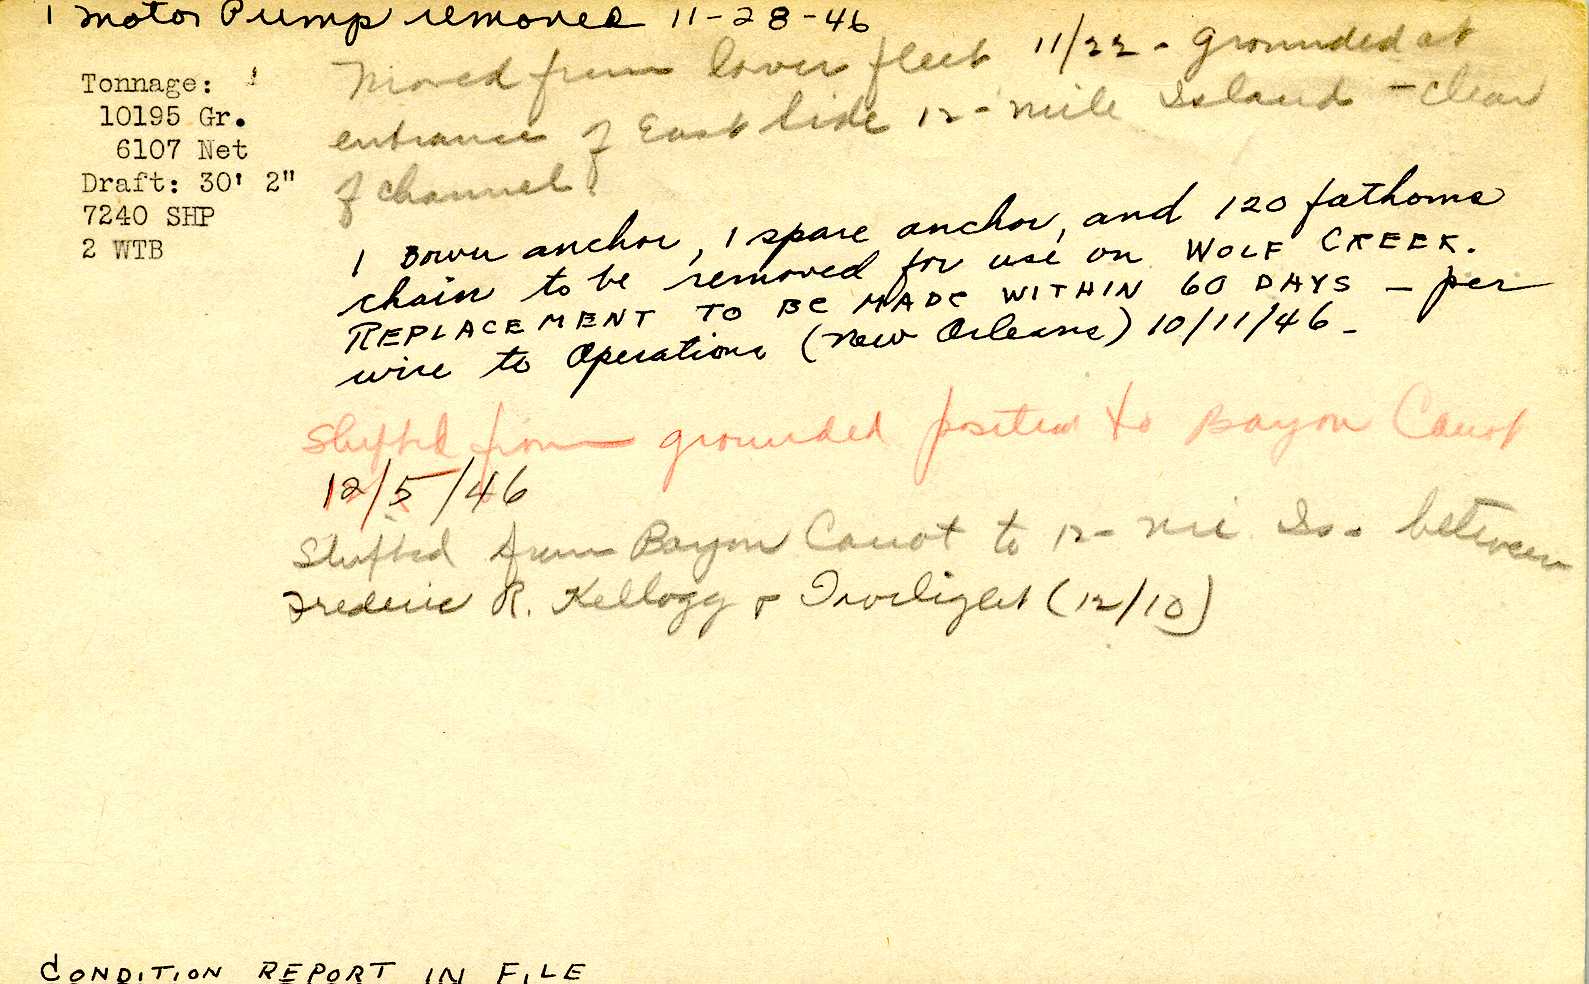 1 motor Pump removed 11-28-46
Tonnage:
10195 Gr.
6107 Net
Draft: 30' 2"
7240 SHP
2 WTB
Moved from lower fleet 11/22 - grounded at
entrance of East side 12-mile Island - clear
of channel.
1 Bower anchor, 1 spare anchor, and 120 fathoms
chain to be removed for use on WOLF CREEK.
REPLACEMENT TO BE MADE WITHIN 60 DAYS - per
wire to Operations (New Orleans) 10/11/46 -
Shifted from grounded position to Bayou Canot
12/5/46
Shifted from Bayou Canot to 12-mi Is. between
Frederic R. Kellogg & Twilight (12/10)
CONDITION REPORT IN FILE